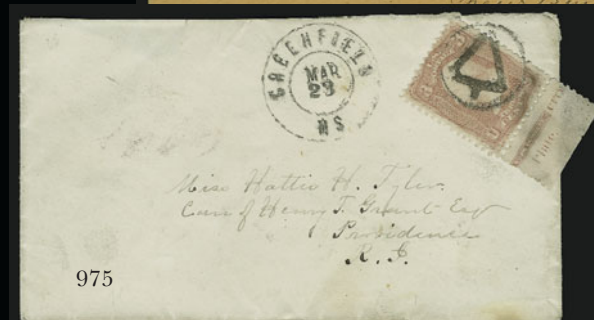 GREENFIELD
MAR
23
MS
Miss Hattie H. Tyler.
Care of Henry T. Grant Esqr
Providence
R. I.
975